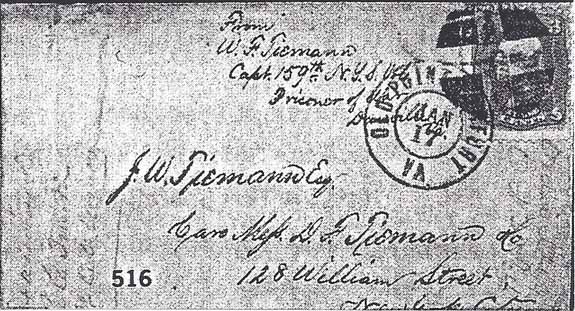 From
W. F. Tiemann
Capt. 159th N.Y.S. Vol
Prisoner of War
Danville Va.
OLD POINT COMFORT
JAN
17
VA.
J. W. Tiemann Esq.
Care Mess. D. F. Tiemann & Co
128 William Street,
New York City
516